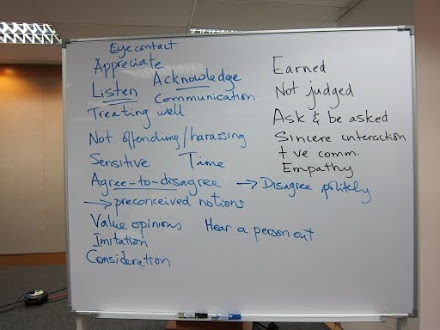 Eye contact
Appreciate
Listen Acknowledge
Communication
Treating well
Not offending/harassing
Sensitive Time
Agree-to-disagree → Disagree politely
→ preconceived notions
Value opinions Hear a person out
Imitation
Consideration
Earned
Not judged
Ask & be asked
Sincere interaction
+ve comm.
Empathy